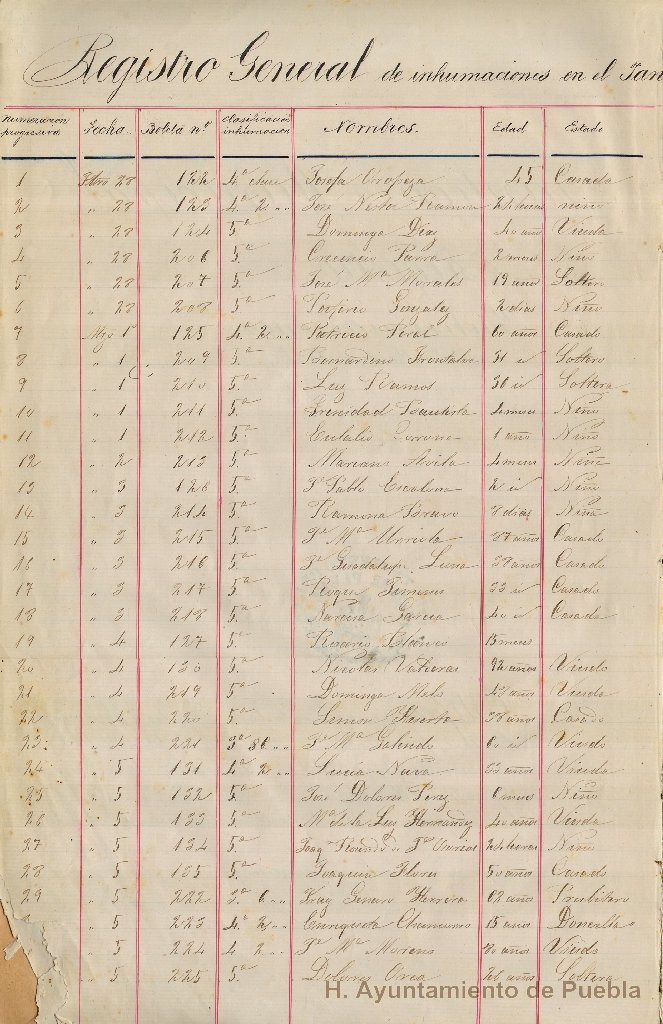 Registro General de inhumaciones en el Pan
Numeracion progresiva Fecha. Boleta nº Clasificacion inhumacion Nombres. Edad Estado
1 Fbro 28 122 4.ª clase Josefa Oropeza 45 Casada
2 " 28 123 4.ª 2 " José 24 horas niño
3 " 28 124 5.ª Dominga Diaz 40 años Viuda
4 " 28 206 5.ª Crecencio Parra 2 meses Niño
5 " 28 207 5.ª José Mª Morales 19 años Soltero
6 " 28 208 5.ª Porfirio Gonzalez 2 dias Niño
7 Mzo 1º 125 4.ª 2 " Patricio 60 años Casado
8 " 1 209 5.ª Bernardino 31 id Soltero
9 " 1 210 5.ª Luz Ramos 30 id Soltera
10 " 1 211 5.ª Trinidad Bautista meses Niño
11 " 1 212 5.ª Eulalio Corona 1 año Niño
12 " 2 213 5.ª Mariana Avila 4 meses Niña
13 " 3 126 5.ª Pablo 2 id Niño
14 " 3 214 5.ª Ramona Bravo 8 dias Niña
15 " 3 215 5.ª Jª Mª Urrieta 37 años Casado
16 " 3 216 5.ª Jª Guadalupe Luna 39 años Casado
17 " 3 217 5.ª Roque Jimenez 33 id Casado
18 " 3 218 5.ª Narcisa Garcia 40 id Casada
19 " 4 127 5.ª Rosario 15 meses
20 " 4 130 5.ª Nicolas 92 años Viudo
21 " 4 219 5.ª Dominga Melo 47 años Viuda
22 " 4 220 5.ª Simon Huerta 38 años Casado
23 " 4 221 3.ª Jª Mª Galindo 60 id Viudo
24 " 5 131 4.ª 2 " Lucia Nava 33 años Viuda
25 " 5 132 5.ª José Dolores Perez 6 meses Niño
26 " 5 133 5.ª Mª de la Luz Hernandez 40 años Viuda
27 " 5 134 5.ª 24 horas Niño
28 " 5 135 5.ª Joaquin Flores 50 años Casado
29 " 5 222 3.ª 6 " Fray Genaro Herrera 62 años Presbitero
" 5 223 4.ª 2 " Enriqueta Chamorro 15 años Doncella
" 5 224 4 2 " Jª Mª Moreno 80 años Viudo
" 5 225 5.ª Dolores Orea años Soltera
H. Ayuntamiento de Puebla